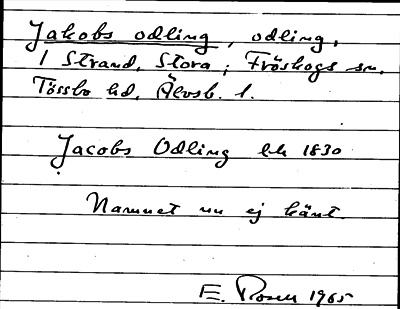 Jakobs odling, odling,
/ Strand, Stora; Fröskogs sn,
Tössbo hd, Älvsb. l.
Jacobs Odling lh 1830
Namnet nu ej känt.
E. Rosell 1965